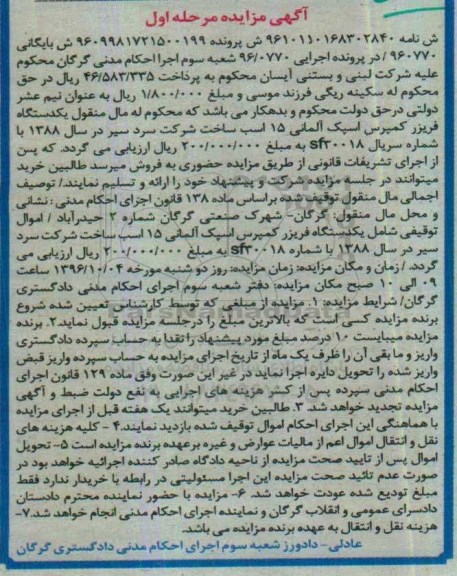 آگهی مزایده مرحله اول
ش نامه ۹۶۱۰۱۱۰۱۶۸۳۰۲۸۴۰ ش پرونده ۹۶۰۹۹۸۱۷۲۱۵۰۰۱۹۹ ش بایگانی
۹۶۰۷۷۰ / در پرونده اجرایی ۹۶/۰۷۷۰ شعبه سوم اجرا احکام مدنی گرگان محکوم
علیه شرکت لبنی و بستنی آیسان محکوم به پرداخت ۴۶/۵۸۳/۳۳۵ ریال در حق
محکوم له سکینه ریگی فرزند موسی و مبلغ ۱/۸۰۰/۰۰۰ ریال به عنوان نیم عشر
دولتی درحق دولت محکوم و بدهکار می باشد که محکوم له مال منقول یکدستگاه
فریزر کمپرس اسپک آلمانی ۱۵ اسب ساخت شرکت سرد سیر در سال ۱۳۸۸ با
شماره سریال sf۳۰۰۱۸ به مبلغ ۲۰۰/۰۰۰/۰۰۰ ریال ارزیابی می گردد. که پس
از اجرای تشریفات قانونی از طریق مزایده حضوری به فروش میرسد طالبین خرید
میتوانند در جلسه مزایده شرکت و پیشنهاد خود را ارائه و تسلیم نمایند./ توصیف
اجمالی مال منقول توقیف شده براساس ماده ۱۳۸ قانون اجرای احکام مدنی : نشانی
و محل مال منقول: گرگان- شهرک صنعتی گرگان شماره ۲ حیدرآباد / اموال
توقیفی شامل یکدستگاه فریزر کمپرس اسپک آلمانی ۱۵ اسب ساخت شرکت سرد
سیر در سال ۱۳۸۸ با شماره sf۳۰۰۱۸ به مبلغ ۲۰۰/۰۰۰/۰۰۰ ریال ارزیابی می
گردد. / زمان و مکان مزایده: زمان مزایده: روز دو شنبه مورخه ۱۳۹۶/۱۰/۰۴ ساعت
۰۹ الی ۱۰ صبح مکان مزایده: دفتر شعبه سوم اجرای احکام مدنی دادگستری
گرگان/ شرایط مزایده: ۱. مزایده از مبلغی که توسط کارشناس تعیین شده شروع
برنده مزایده کسی است که بالاترین مبلغ را درجلسه مزایده قبول نماید ۲. برنده
مزایده میبایست ۱۰ درصد مبلغ مورد پیشنهاد را نقدا به حساب سپرده دادگستری
واریز و ما بقی آن را ظرف یک ماه از تاریخ اجرای مزایده به حساب سپرده واریز قبض
واریز شده را تحویل دایره اجرا نماید در غیر این صورت وفق ماده ۱۲۹ قانون اجرای
احکام مدنی سپرده پس از کسر هزینه های اجرایی به نفع دولت ضبط و آگهی
مزایده تجدید خواهد شد. ۳. طالبین خرید میتوانند یک هفته قبل از اجرای مزایده
با هماهنگی این اجرای احکام اموال توقیف شده بازدید نمایند.۴ - کلیه هزینه های
نقل و انتقال اموال اعم از مالیات عوارض و غیره برعهده برنده مزایده است ۵- تحویل
اموال پس از تایید صحت مزایده از ناحیه دادگاه صادر کننده اجرائیه خواهد بود در
صورت عدم تائید صحت مزایده این اجرا مسئولیتی در رابطه با خریدار ندارد فقط
مبلغ تودیع شده عودت خواهد شد. ۶- مزایده با حضور نماینده محترم دادستان
دادسرای عمومی و انقلاب گرگان و نماینده اجرای احکام مدنی انجام خواهد شد.۷-
هزینه نقل و انتقال به عهده برنده مزایده می باشد.
عادلی- دادورز شعبه سوم اجرای احکام مدنی دادگستری گرگان